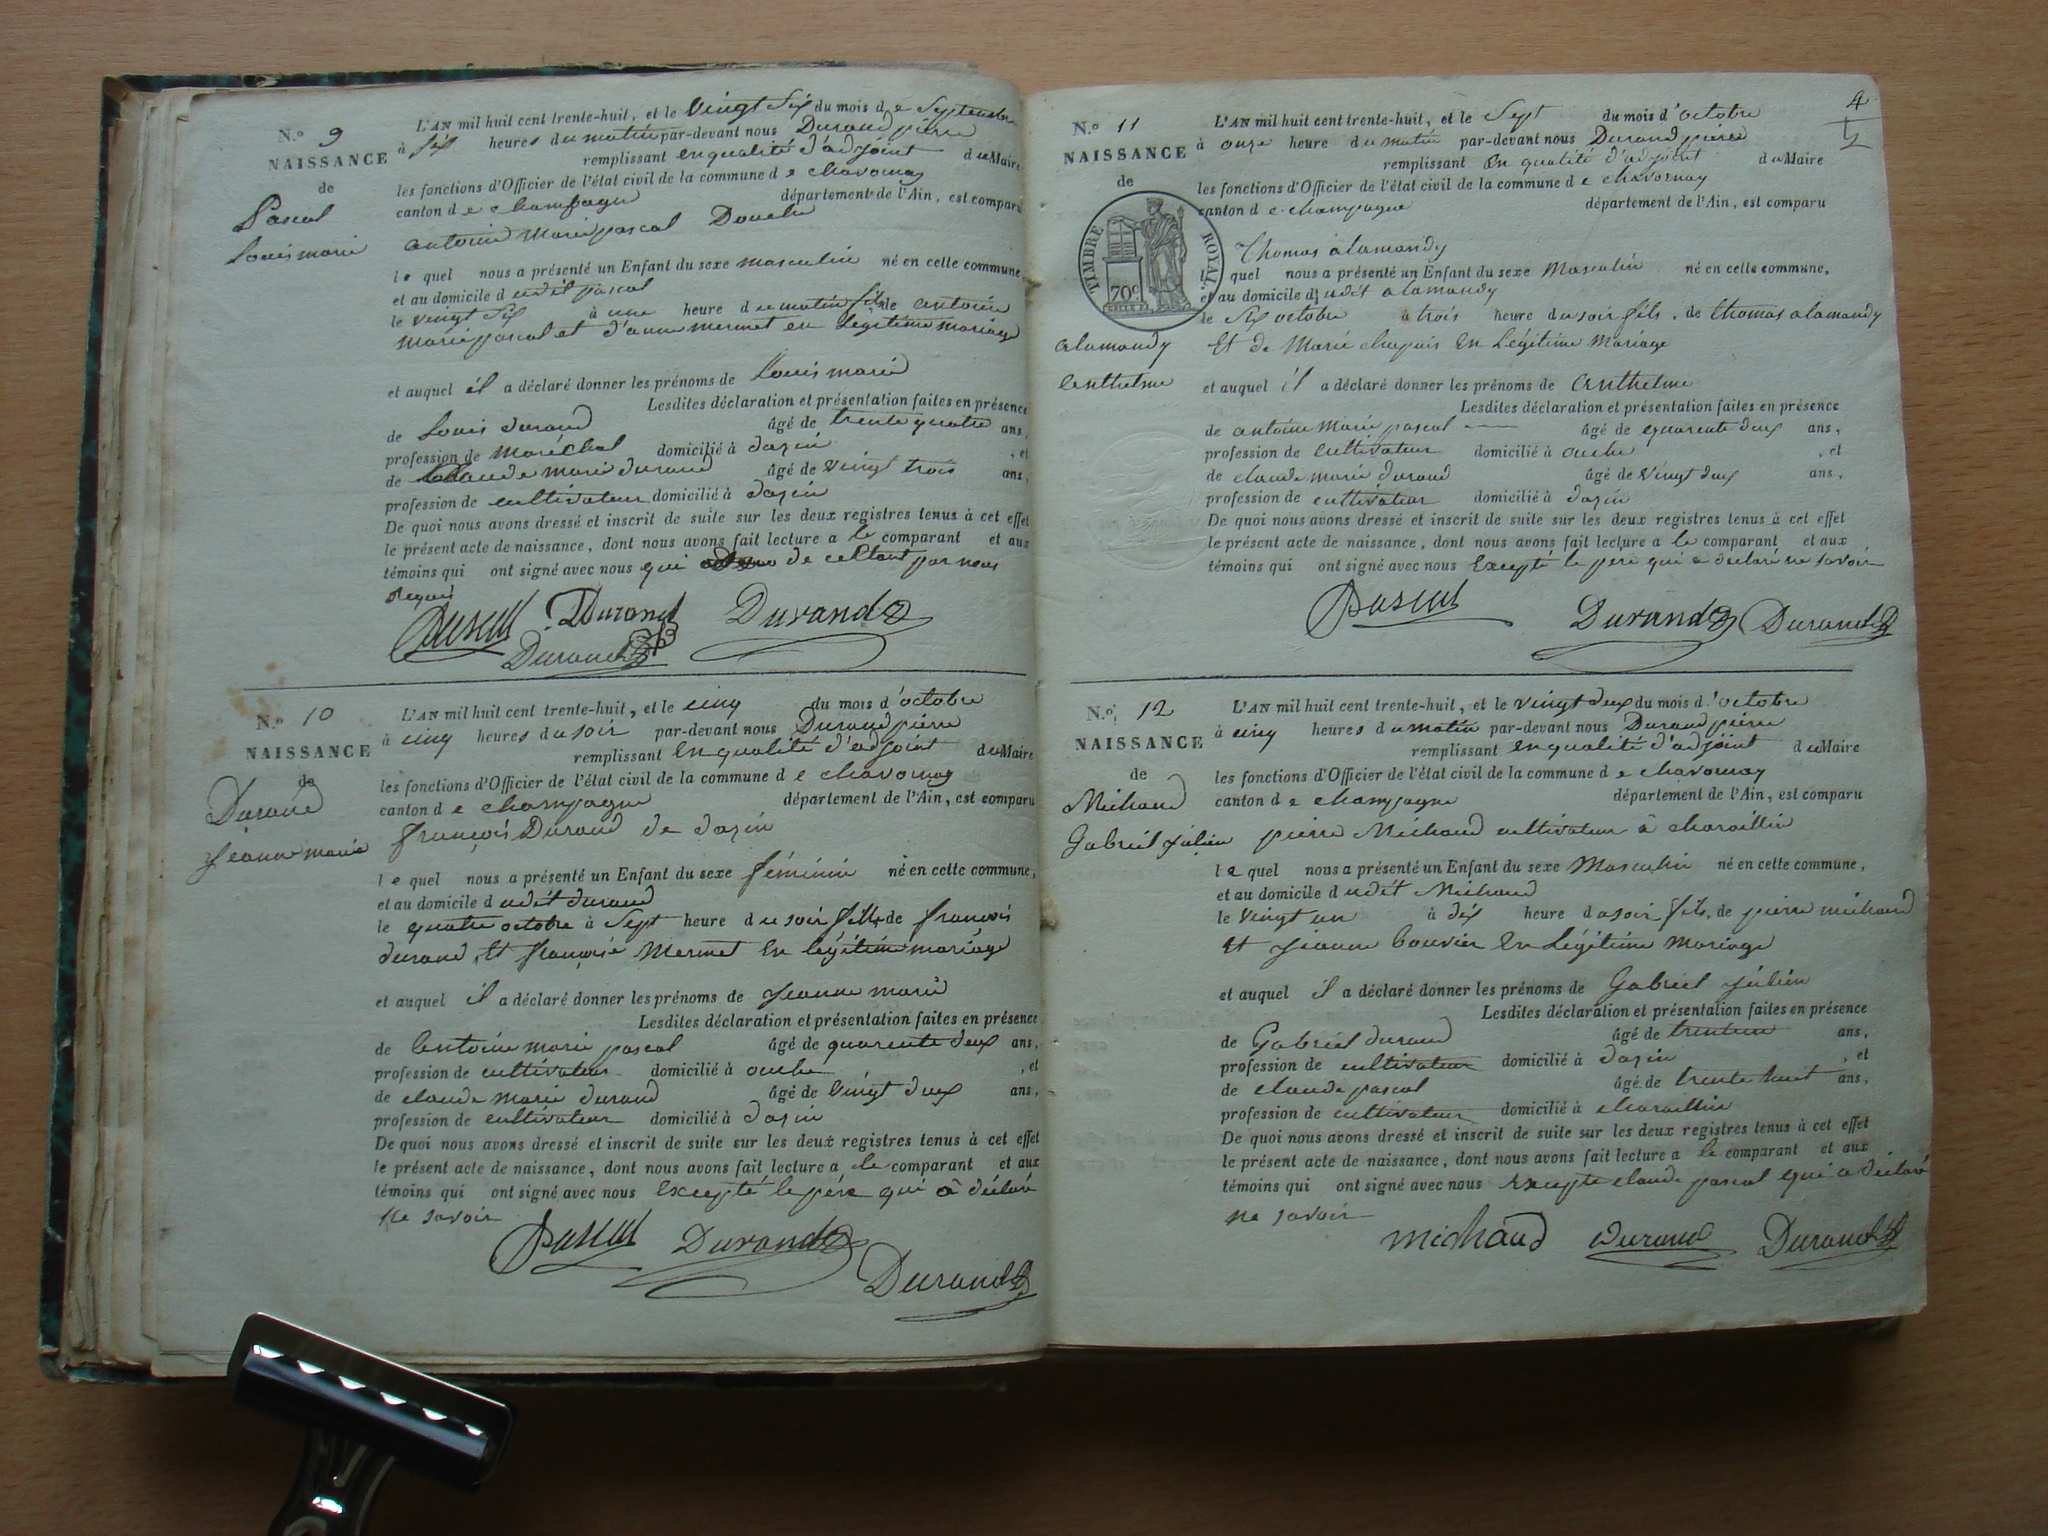 N.o 9
NAISSANCE
de
Pascal
Louis marie
L'AN mil huit cent trente-huit, et le vingt six du mois de Septembre
à six heures du matin par-devant nous Durand pierre
remplissant en qualité d'adjoint du Maire
les fonctions d'Officier de l'état civil de la commune de chavornay
canton de champagne département de l'Ain, est comparu
antoine Marie pascal
le quel nous a présenté un Enfant du sexe masculin né en cette commune,
et au domicile dudit pascal
le vingt six à une heure du matin fils de antoine
Marie pascal et d'anne mermet en Légitime mariage
et auquel il a déclaré donner les prénoms de Louis marie
Lesdites déclaration et présentation faites en présence
de Louis durand âgé de trente quatre ans,
profession de maréchal domicilié à dazin , et
de Claude marie durand âgé de vingt trois ans,
profession de cultivateur domicilié à dazin
De quoi nous avons dressé et inscrit de suite sur les deux registres tenus à cet effet
le présent acte de naissance, dont nous avons fait lecture a le comparant et aux
témoins qui ont signé avec nous qui de ce par nous
Requis
Pascal Durand Durand
Durand
N.o 10
NAISSANCE
de
Durand
Jeanne marie
L'AN mil huit cent trente-huit, et le cinq du mois d'octobre
à cinq heures du soir par-devant nous Durand pierre
remplissant en qualité d'adjoint du Maire
les fonctions d'Officier de l'état civil de la commune de chavornay
canton de champagne département de l'Ain, est comparu
françois Durand de dazin
le quel nous a présenté un Enfant du sexe féminin né en cette commune,
et au domicile dudit durand
le quatre octobre à Sept heure du soir fille de françois
durand Et françoise Mermet En légitime mariage
et auquel il a déclaré donner les prénoms de Jeanne marie
Lesdites déclaration et présentation faites en présence
de antoine marie pascal âgé de quarente deux ans,
profession de cultivateur domicilié à ouche , et
de claude marie durand âgé de vingt deux ans,
profession de cultivateur domicilié à dazin
De quoi nous avons dressé et inscrit de suite sur les deux registres tenus à cet effet
le présent acte de naissance, dont nous avons fait lecture a le comparant et aux
témoins qui ont signé avec nous Excepté le père qui a déclaré
ne savoir
Pascal Durand
Durand
4
N.o 11
NAISSANCE
de
TIMBRE ROYAL
70c
alamandy
anthelme
L'AN mil huit cent trente-huit, et le Sept du mois d'octobre
à onze heure du matin par-devant nous Durand pierre
remplissant en qualité d'adjoint du Maire
les fonctions d'Officier de l'état civil de la commune de chavornay
canton de champagne département de l'Ain, est comparu
Thomas alamandy
le quel nous a présenté un Enfant du sexe Masculin né en cette commune,
et au domicile dudit alamandy
le Six octobre à trois heure du soir fils, de thomas alamandy
Et de Marie chapuis En Légitime Mariage
et auquel il a déclaré donner les prénoms de anthelme
Lesdites déclaration et présentation faites en présence
de antoine marie pascal âgé de quarente deux ans,
profession de cultivateur domicilié à ouche , et
de claude marie durand âgé de Vingt deux ans,
profession de cultivateur domicilié à dazin
De quoi nous avons dressé et inscrit de suite sur les deux registres tenus à cet effet
le présent acte de naissance, dont nous avons fait lecture a le comparant et aux
témoins qui ont signé avec nous Excepté le père qui a déclaré ne savoir
Pascal Durand Durand
N.o 12
NAISSANCE
de
Michaud
Gabriel julien
L'AN mil huit cent trente-huit, et le vingt deux du mois d'octobre
à cinq heures du matin par-devant nous Durand pierre
remplissant en qualité d'adjoint du Maire
les fonctions d'Officier de l'état civil de la commune de chavornay
canton de champagne département de l'Ain, est comparu
pierre Michaud cultivateur à charaillin
le quel nous a présenté un Enfant du sexe Masculin né en cette commune,
et au domicile dudit Michaud
le vingt un à dix heure du soir fils, de pierre michaud
Et jeanne bouvier En Légitime Mariage
et auquel il a déclaré donner les prénoms de Gabriel julien
Lesdites déclaration et présentation faites en présence
de Gabriel durand âgé de ans,
profession de cultivateur domicilié à dazin , et
de claude pascal âgé de trente huit ans,
profession de cultivateur domicilié à charaillin
De quoi nous avons dressé et inscrit de suite sur les deux registres tenus à cet effet
le présent acte de naissance, dont nous avons fait lecture a le comparant et aux
témoins qui ont signé avec nous Excepté claude pascal qui a déclaré
ne savoir
michaud Durand Durand